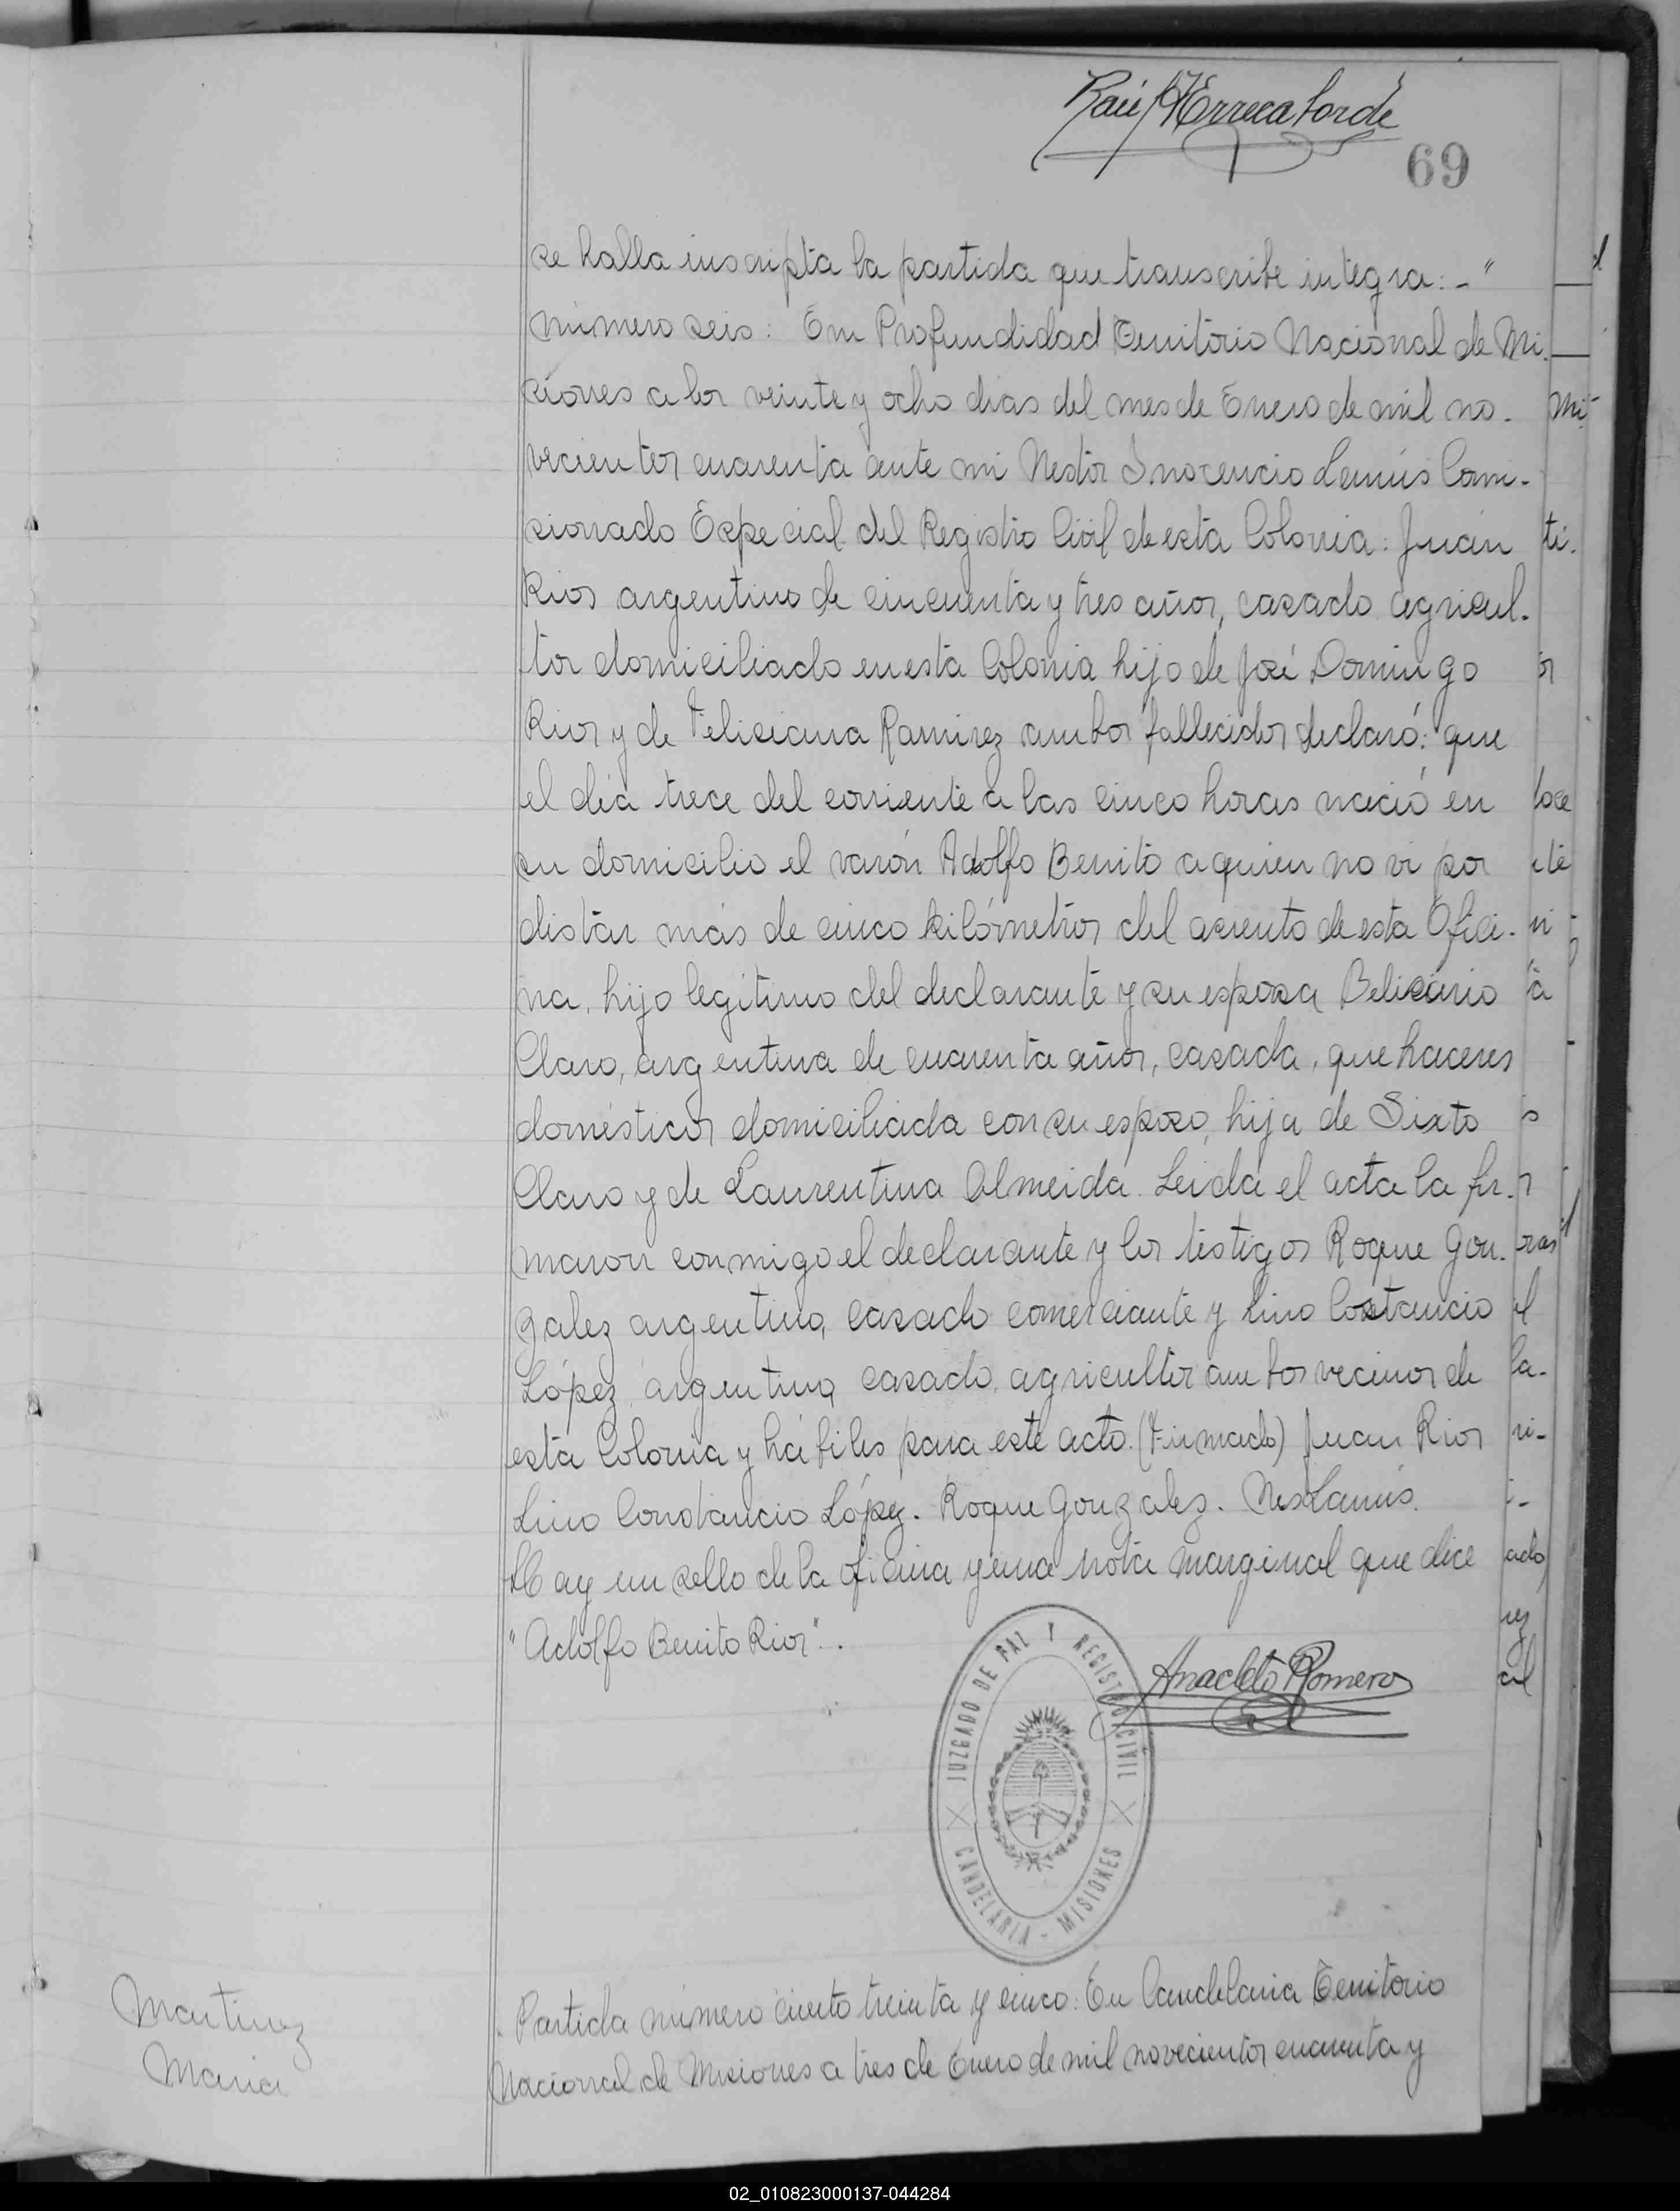 Raúl H Erreca borde
69
se halla inscripta la partida que transcribe integra: - "
número seis: En Profundidad Territorio Nacional de Mi-
siones a los veinte y ocho dias del mes de Enero de mil no-
vecientos cuarenta ante mi Nestor Inocencio Lemús Comi-
sionado Especial del Registro Civil de esta Colonia: Juan
Rios argentino de cincuenta y tres años, casado agricul-
tor domiciliado en esta Colonia hijo de José Domingo
Rios y de Feliciana Ramirez ambos fallecidos declaró: que
el día trece del corriente a las cinco horas nació en
su domicilio el varón Adolfo Benito a quien no vi por
distar más de cinco kilómetros del asiento de esta Ofici-
na, hijo legitimo del declarante y su esposa Belisario
Claro, argentina de cuarenta años, casada, que haceres
domésticos domiciliada con su esposo, hija de Sixto
Claro y de Laurentina Almeida. Leida el acta la fir-
maron conmigo el declarante y los testigos Roque Gon-
zalez argentino, casado comerciante y Lino Costancio
López, argentino, casado, agricultor ambos vecinos de
esta Colonia y hábiles para este acto. (Firmado) Juan Rios
Lino Constancio López. Roque Gonzalez. Nes Lamús.
Hay un sello de la oficina y una nota marginal que dice
"Adolfo Benito Rios".
Anacleto Romero
JUZGADO DE PAZ Y REGISTRO CIVIL
CANDELARIA - MISIONES
Martinez
Maria
Partida número ciento treinta y cinco: En Candelaria Territorio
Nacional de Misiones a tres de Enero de mil novecientos cuarenta y
02_010823000137-044284